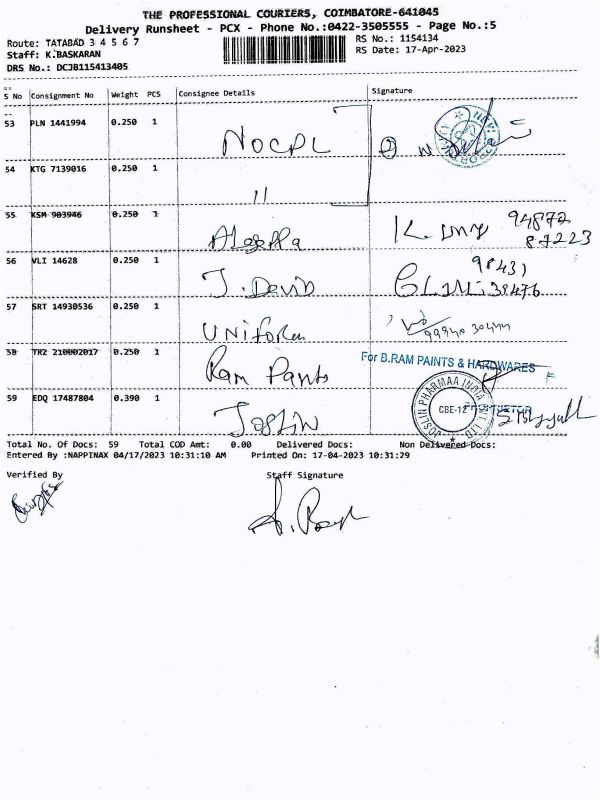 THE PROFESSIONAL COURIERS, COIMBATORE-641045
Delivery Runsheet - PCX - Phone No.:0422-3505555 - Page No.:5
Route: TATABAD 3 4 5 6 7
RS No.: 1154134
Staff: K.BASKARAN
RS Date: 17-Apr-2023
DRS No.: DCJB115413405
S No Consignment No Weight PCS Consignee Details Signature
53 PLN 1441994 0.250 1 NOCPL
54 KTG 7139016 0.250 1 11
55 KSM 903946 0.250 1 94872 87223
56 VLI 14628 0.250 1 J. David 98431 39476
57 SRT 14930536 0.250 1 UNiform
58 TRZ 210002017 0.250 1 Ram Paints For B.RAM PAINTS & HARDWARES
59 EDQ 17487804 0.390 1 Joslin JOSLIN PHARMAA INDIA PVT. LTD CBE-12
Total No. Of Docs: 59 Total COD Amt: 0.00 Delivered Docs: Non Delivered Docs:
Entered By :NAPPINAX 04/17/2023 10:31:10 AM Printed On: 17-04-2023 10:31:29
Verified By Staff Signature